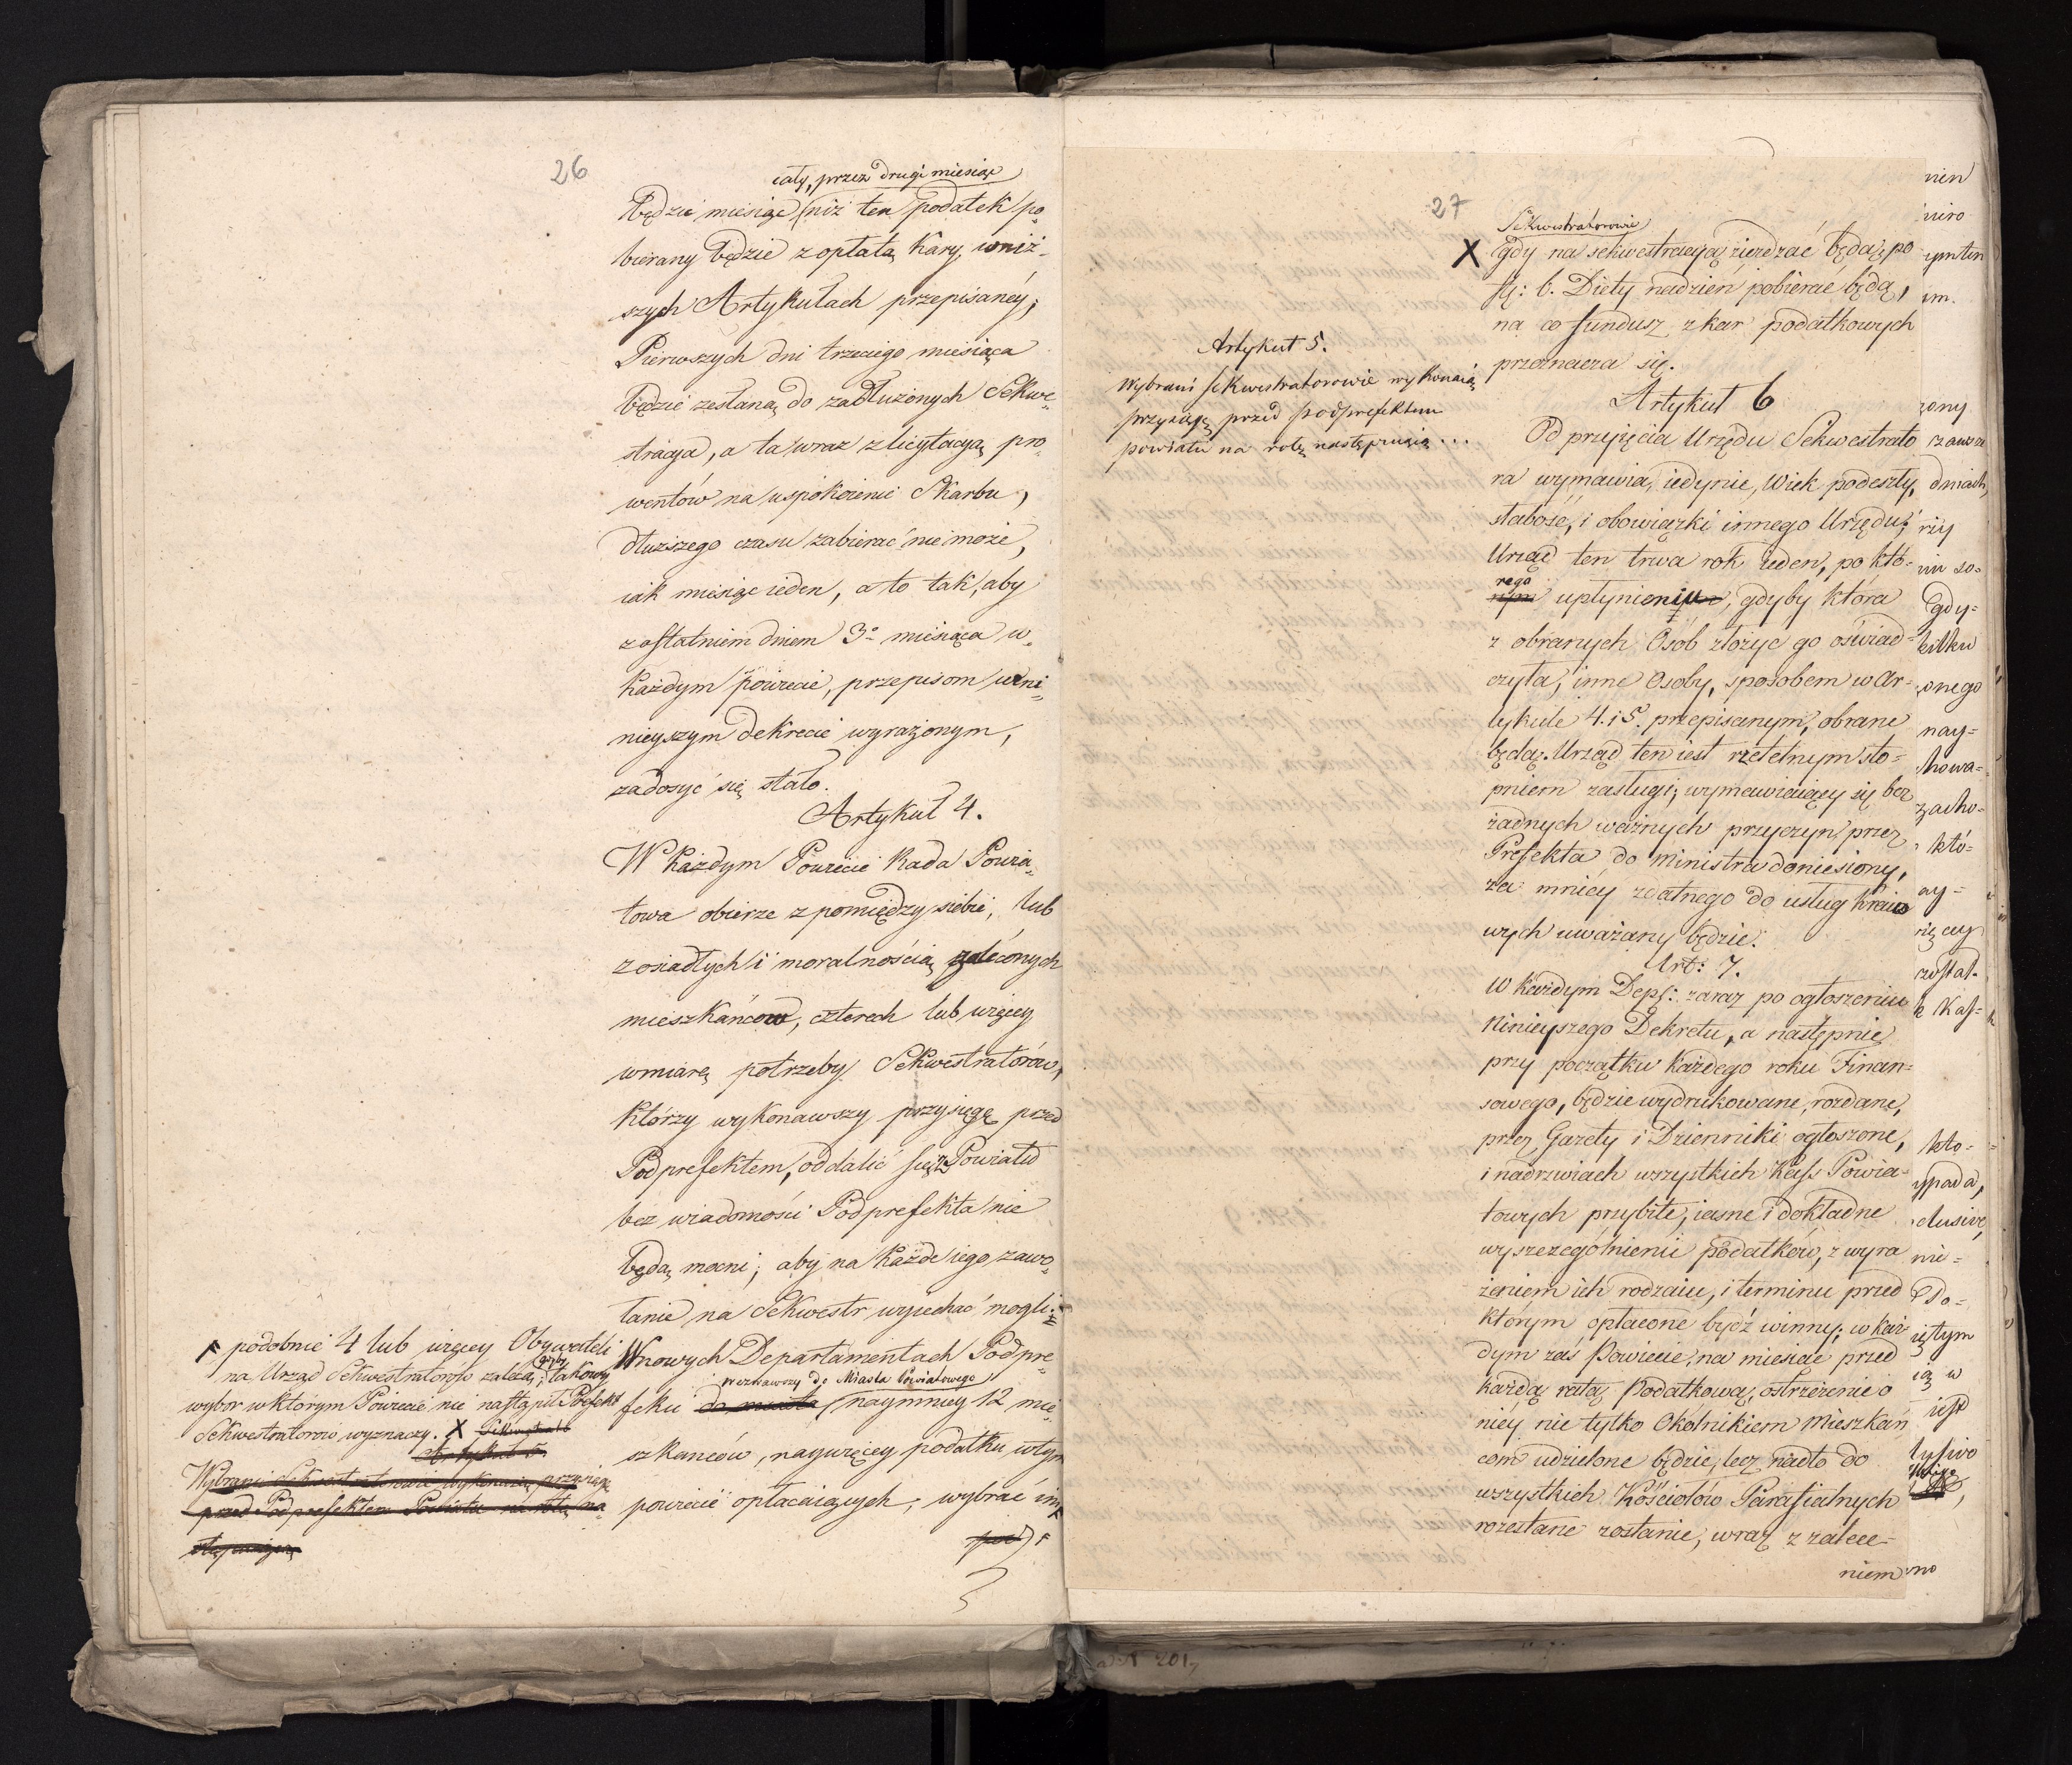 26
cały, przez drugi miesiąc
będzie miesiąc (niż ten podatek po„
bierany będzie z opłatą kary, w niż„
szych Artykułach przepisanéy;
Pierwszych dni trzeciego miesiąca
będzie zesłaną do zadłużonych Sekwe„
stracya, a ta wraz z licytacyą pro„
wentów na uspokoienie Skarbu,
dłuższego czasu zabierać nie może,
iak miesiąc ieden, a to tak, aby
z ostatniem dniem 3º miesiąca w„
każdym powiecie, przepisom w ni„
nieyszym dekrecie wyrażonym,
zadosyć się stało.
Artykuł 4.
W każdym Powiecie Rada Powia„
towa obierze z pomiędzy siebie, lub
z osiadłych i moralnością zaleconych
mieszkańców, czterech lub więcey
w miarę potrzeby Sekwestratorów,
którzy wykonawszy przysięgę przed
Podprefektem, oddalić się z Powiatu
bez wiadomości Podprefekta nie
będą mocni; aby na każde iego zawo„
łanie na Sekwestr wyiechać mogli.
W nowych Departamentach Podpre„
wezwawszy do Miasta Powiatowego
feku do miasta (naymniey 12 mie„
szkańców, naywięcey podatku w tym
powiecie opłacaiących, wybrać im
pod)
podobnie 4 lub więcey Obywateli
na Urząd Sekwestratorów zaleca; gdyby takowy
wybor w którym Powiecie nie nastąpił Prefekt
Sekwestratorów wyznaczy. X Sekwestrato
Artykuł 5.
Wybrani Sekwestratorowie wykonaią przysięgę
przed Podprefektem Powiatu na rotę na„
stępuiącą
27
Artykuł 5.
Wybrani Sekwestratorowie wykonaią
przysięgę przed podprefektem
powiatu na rotę następuiącą ...
Sekwestratorowie
X gdy na sekwestracyą zieżdżać będą, po
zł: 6. Diety na dzień pobierać będą,
na co fundusz z kar podatkowych
przeznacza się.
Artykuł 6
Od przyjęcia Urzędu Sekwestrato
ra wymawia, iedynie, Wiek podeszły,
słabość, i obowiązki innego Urzędu;
Urząd ten trwa rok ieden, po któ-
rego
rym upłynieniu, gdyby która
z obranych Osób złożyć go oświad-
czyła, inne Osoby, sposobem w Ar-
tykule 4. i 5. przepisanym, obrane
będą. Urząd ten iest rzetelnym sto-
pniem zasługi; wymawiaiący się bez
żadnych ważnych przyczyn przez
Prefekta do ministra doniesiony,
za mniéy zdatnego do usług kraio
wych uważany będzie.
Art: 7.
W każdym Dep: zaraz po ogłoszeniu
Ninieyszego Dekretu, a następnie
przy początku każdego roku Finan-
sowego, będzie wydrukowane, rozdane,
przez Gazety i Dzienniki ogłoszone,
i na drzwiach wszystkich Kass Powia-
towych przybite, iasne i dokładne
wyszczególnienie podatków, z wyra
żeniem ich rodzaiu, i terminu przed
którym opłacone bydź winny; w każ-
dym zaś Powiecie, na miesiąc przed
każdą ratą Podatkową, ostrzeżenie o
niéy nie tylko Okólnikiem Mieszkań
com udzielone będzie, lecz nadto do
wszystkich Kościołów Parafialnych
rozesłane zostanie, wraz z zalece-
niem